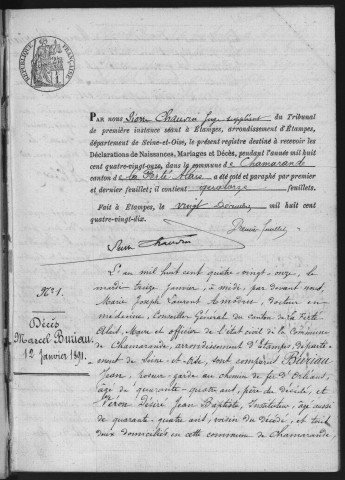 RÉPUBLIQUE FRANÇAISE
PAR nous Léon Chauvin juge suppléant du Tribunal
de première instance séant à Étampes, arrondissement d'Étampes,
département de Seine-et-Oise, le présent registre destiné à recevoir les
Déclarations de Naissances, Mariages et Décès, pendant l'année mil huit
cent quatre-vingt-onze, dans la commune de Chamarande
canton de la Ferté-Alais a été coté et paraphé par premier
et dernier feuillet; il contient quatorze feuillets.
Fait à Étampes, le vingt Décembre mil huit cent
quatre-vingt-dix.
Premier feuillet
Léon Chauvin
N° 1.
Décès
Marcel Bureau.
12 Janvier 1891.
L'an mil huit cent quatre-vingt-onze, le
mardi treize Janvier, à midi, par devant nous,
Marie Joseph Laurent Amodru, docteur en
médecine, Conseiller Général du canton de la Ferté
Alais, Maire et officier de l'état civil de la Commune
de Chamarande, arrondissement d'Etampes, departe-
ment de Seine-et-Oise, sont comparus Bureau
Jean, garde au chemin de fer d'Orléans,
âgé de quarante-quatre ans, père du décédé, et
Véron Désiré Jean Baptiste, Instituteur, âgé aussi
de quarante-quatre ans, voisin du décédé, et tout
deux domiciliés en cette commune de Chamarande,